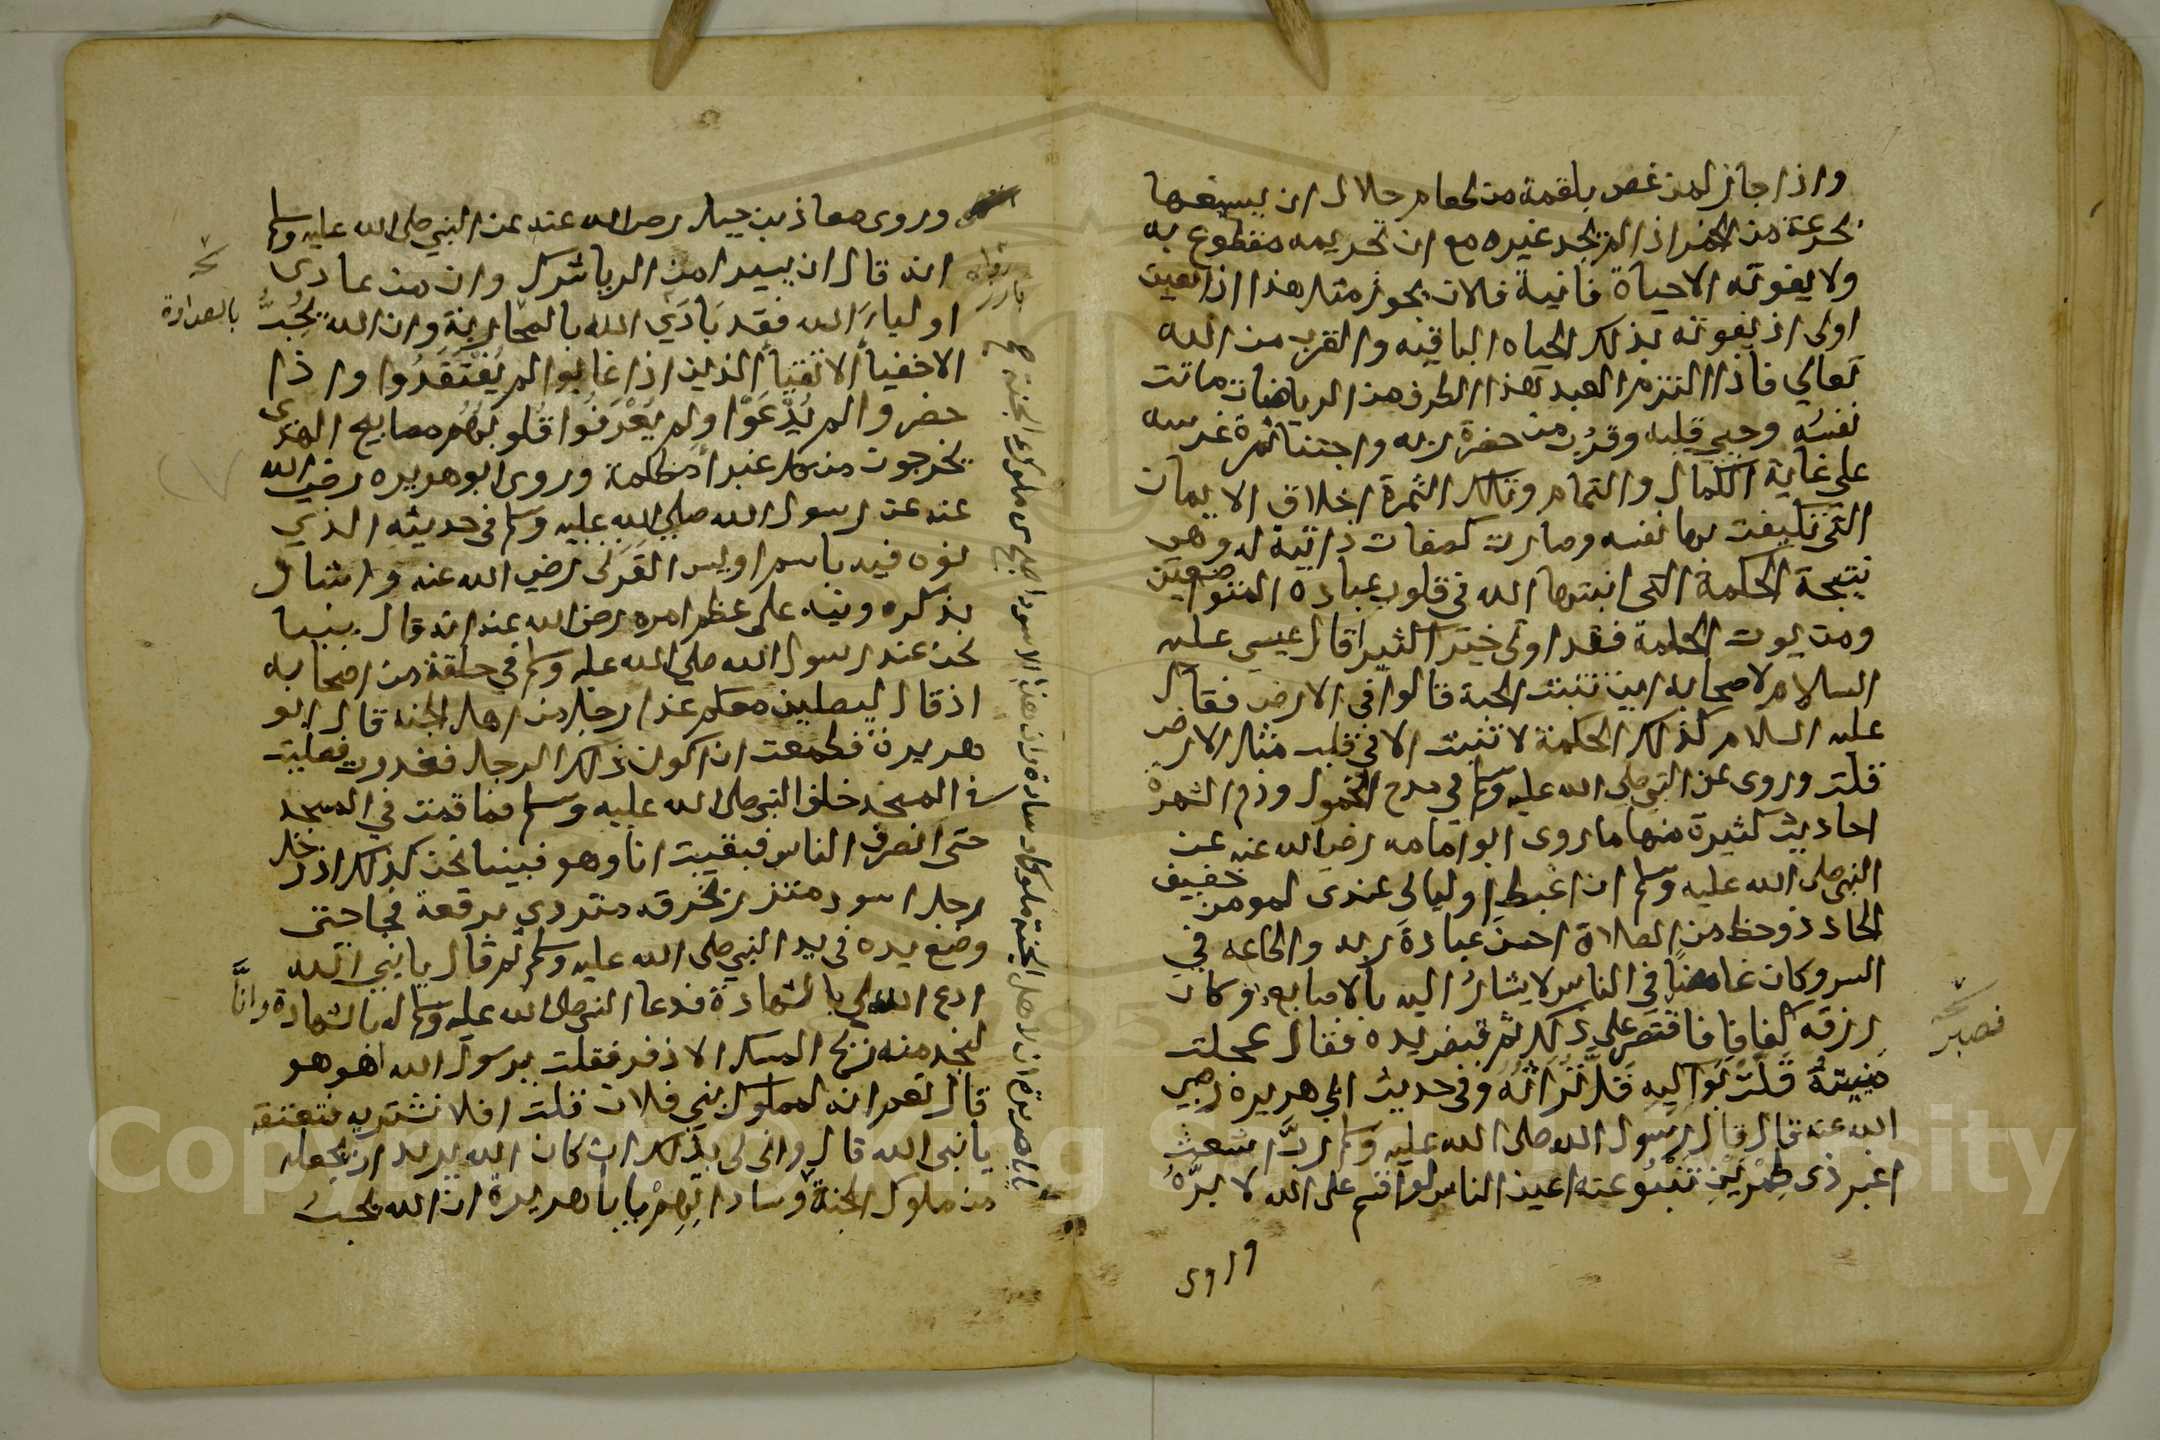 واذا جاز لمن غص بلقمة من طعام حلال ان يسيغها
بجرعة من الخمر اذا لم يجد غيره مع ان تحريمه مقطوع به
ولا يفوته الا حياة فانية فلان يجوز مثل هذا اذا تعين
اولى اذ يفوته بذلك الحياه الباقيه والقرب من الله
تعالي فاذا التزم العبد هذا الطرف من الرياضات ماتت
نفسه وحيي قلبه وقرب من حضرة ربه واجتنا ثمرة غرسه
علي غاية الكمال والتمام وتلك الثمرة اخلاق الايمان
التي تكيفت بها نفسه وصارت كصفات ذاتية له وهي
نتيجة الحكمة التي انبتها الله في قلوب عباده المتواضعين
ومن يوت الحكمة فقد اوتى خيرا كثيرا قال عيسي عليه
السلام لاصحابه اين تنبت الحبة قالوا في الارض فقال
عليه السلام كذلك الحكمة لا تنبت الا في قلب مثل الارض
قلت وروى عن النبي صلى الله عليه وسلم في مدح الخمول وذم الشهرة
احاديث كثيرة منها ما روى ابو امامه رضي الله عنه عن
النبي صلى الله عليه وسلم ان اغبط اوليالى عندى لمومن خفيف
الحاذ ذو حظ من الصلاة احسن عبادة ربه واطاعه في
السر وكان غامضا في الناس لا يشار اليه بالاصابع وكان
رزقه كفافا فاقتصر علي ذلك ثم قبض بيده فقال عجلت
منيته قلت بواكيه قل تراثه وفي حديث ابي هريرة رضي
الله عنه قال قال رسول الله صلى الله عليه وسلم رب اشعث
اغبر ذى طمرين تنبو عنه اعين الناس لو اقسم على الله لابره
وروى
نخ
فصبر
وروى معاذ بن جبل رضى الله عنه عن النبي صلى الله عليه وسلم
انه قال ان يسيرا من الريا شرك وان من عادى
اولياء الله فقد بادى الله بالمحاربة وان الله يحب
الاخفيا الاتقيا الذين اذا غابوا لم يفتقدوا واذا
حضروا لم يدعوا ولم يعرفوا قلوبهم مصابيح الهدى
يخرجون من كل غبرا مظلمة وروى ابو هريره رضي الله
عنه عن رسول الله صلي الله عليه وسلم في حديثه الذي
نوه فيه باسم اويس القرنى رضي الله عنه واشال
بذكره ونبه على عظم امره رضى الله عنه انه قال بينا
نحن عند رسول الله صلي الله عليه وسلم في حلقة من اصحابه
اذ قال ليصلين معكم غدا رجل من اهل الجنه قال ابو
هريرة فطمعت ان اكون ذلك الرجل فغدوت فصليت
في المسجد خلف النبي صلى الله عليه وسلم فما قمت في المسجد
حتى انصرف الناس فبقيت انا وهو فبينا نحن كذلك اذ دخل
رجل اسود متزر بخرقه متردي برقعة فجا حتى
وضع يده في يد النبي صلى الله عليه وسلم ثم قال يا نبي الله
ادع الله لي بالشهادة فدعا النبي صلى الله عليه وسلم له بالشهادة وانا
لنجد منه ريح المسك الاذفر فقلت يرسول الله اهو هو
قال نعم انه لمملوك بني فلان قلت افلا تشتريه فتعتقه
يا نبى الله قال وانى لى بذلك ان كان الله يريد ان يجعله
من ملوك الجنة وساداتهم يا با هريرة ان الله يحب
نخ
بالعداوة